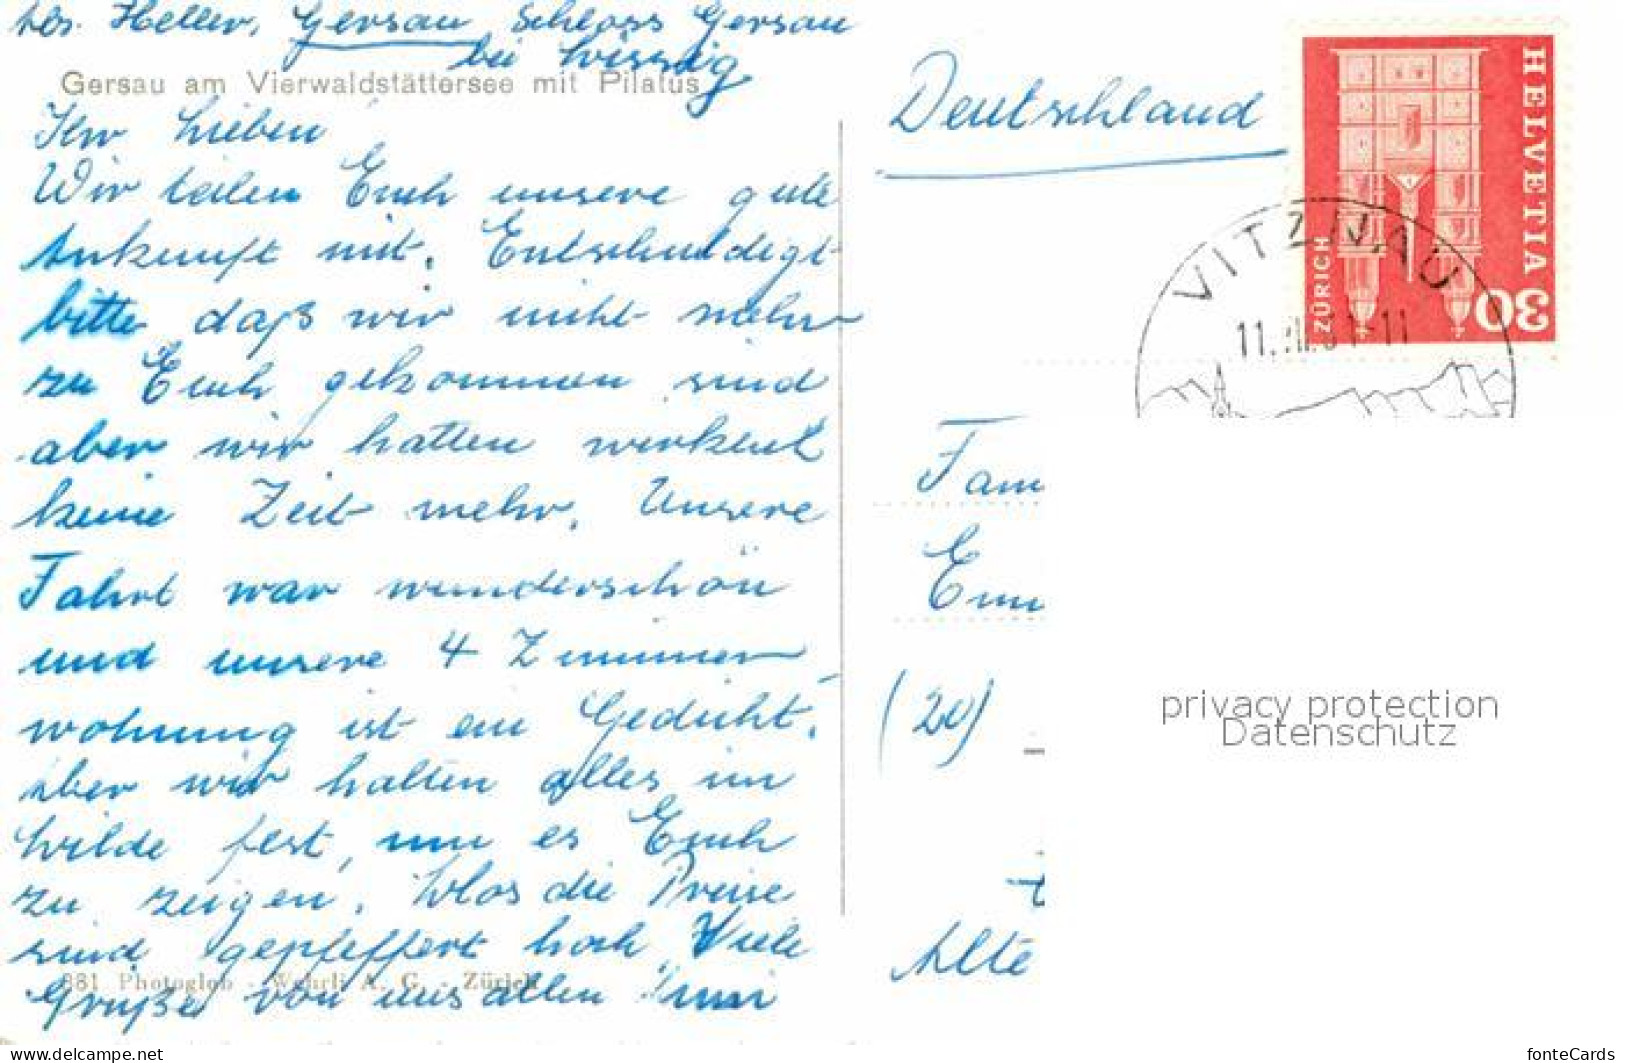 Heller, Gersau Schloss Gersau
bei
Gersau am Vierwaldstättersee mit Pilatus
Ihr Lieben
Wir teilen Euch unsere gute
Ankunft mit. Entschuldigt
bitte daß wir nicht mehr
zu Euch gekommen sind
aber wir hatten wirklich
keine Zeit mehr. Unsere
Fahrt war wunderschön
und unsere 4 Zimmer-
wohnung ist ein Gedicht.
Aber wir halten alles im
Bilde fest, um es Euch
zu zeigen. Blos die Preise
sind gepfeffert hoch. Viele
Grüße von uns allen
981 Photoglob - Wehrli A. G. - Zürich
Deutschland
HELVETIA
30
ZÜRICH
VITZNAU
Fam
(20)
Alte
privacy protection
Datenschutz
www.delcampe.net
fonteCards